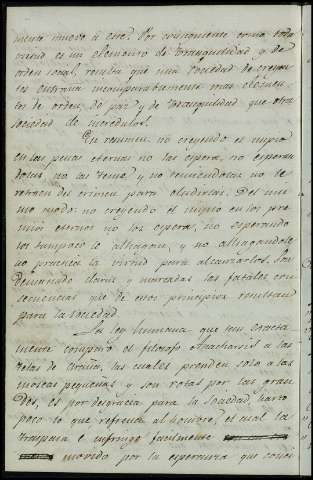 mente nuevo á ese. Por consiguiente como toda
virtud es un elemento de tranquilidad y de
orden social, resulta que una sociedad de creyen
tes entraña incomparablemente mas elemen
tos de orden, de paz y de tranquilidad que otra
sociedad de incredulos.
En resumen: no creyendo el impio
en las penas eternas no las espera, no esperan
dolas no las teme, y no temiendolas no se
retrae del crimen para eludirlas. Del mis
mo modo: no creyendo el impio en los pre
mios eternos no los espera, no esperando
los tampoco le alhagan, y no alhagandole
no practica la virtud para alcanzarlos. Son
demasiado claras y marcadas las fatales con
secuencias que de esos principios resultan
para la sociedad.
La ley humana que tan exacta
mente comparó el filosofo Anacharsis a las
telas de araña, las cuales prenden solo a las
moscas pequeñas y son rotas por las gran
des, es por desgracia para la sociedad, harto
poco lo que refrena al hombre, el cual la
traspasa e infringe facilmente
movido por la esperanza que conci